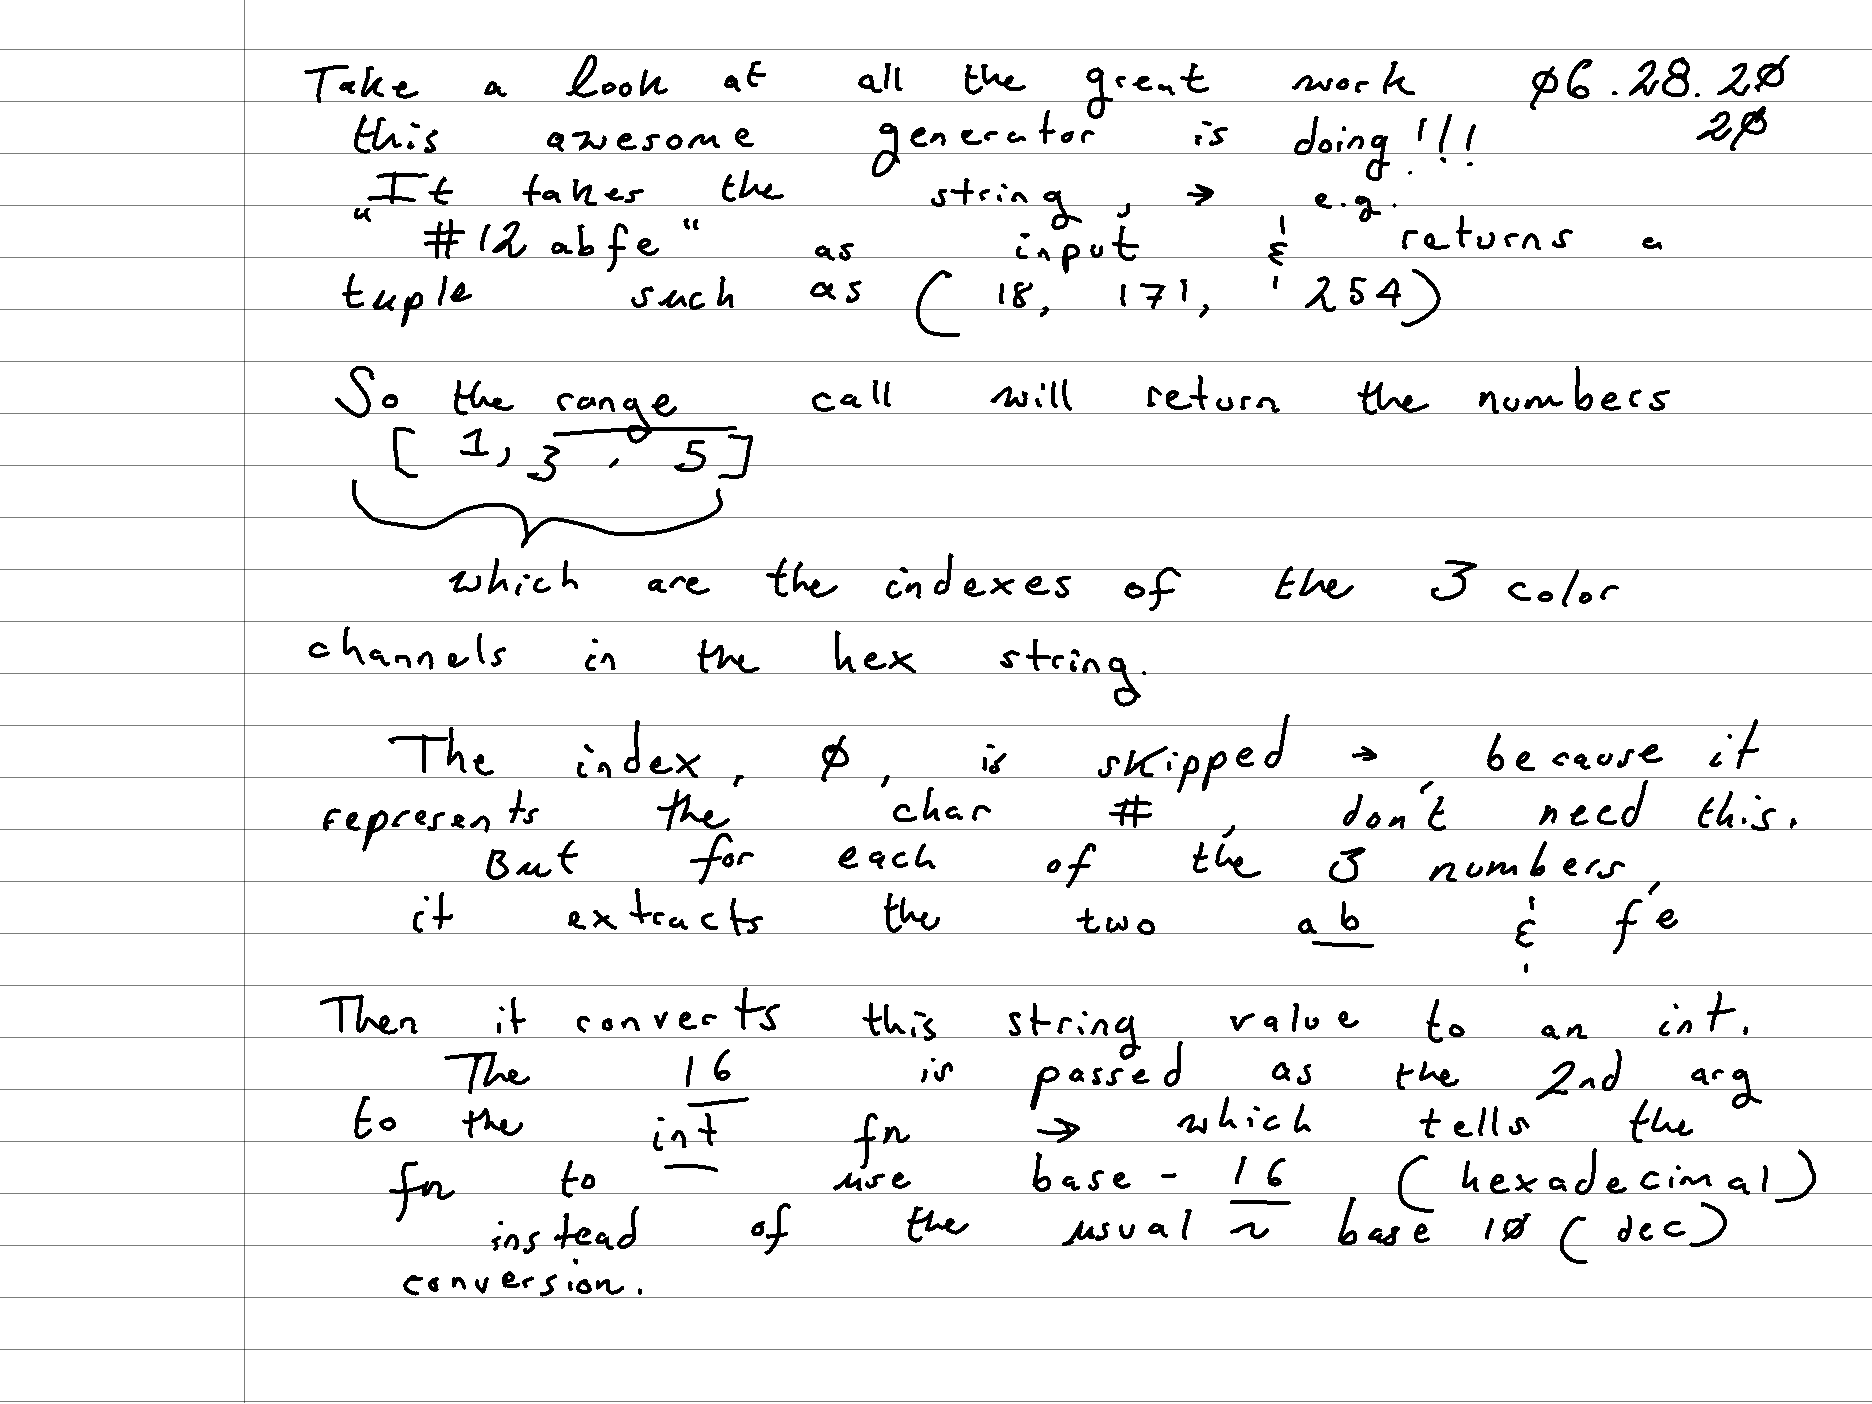 Take a look at all the great work ø6.28.2ø
this awesome generator is doing!!! 2ø
It takes the string, → e.g.
"#12abfe" as input & returns a
tuple such as (18, 171, 254)
So the range call will return the numbers
[1, 3, 5]
which are the indexes of the 3 color
channels in the hex string.
The index, ø, is skipped → because it
represents the char #, don't need this.
But for each of the 3 numbers,
it extracts the two ab & fe
Then it converts this string value to an int.
The 16 is passed as the 2nd arg
to the int fn → which tells the
fn to use base-16 (hexadecimal)
instead of the usual ~ base 1ø (dec)
conversion.